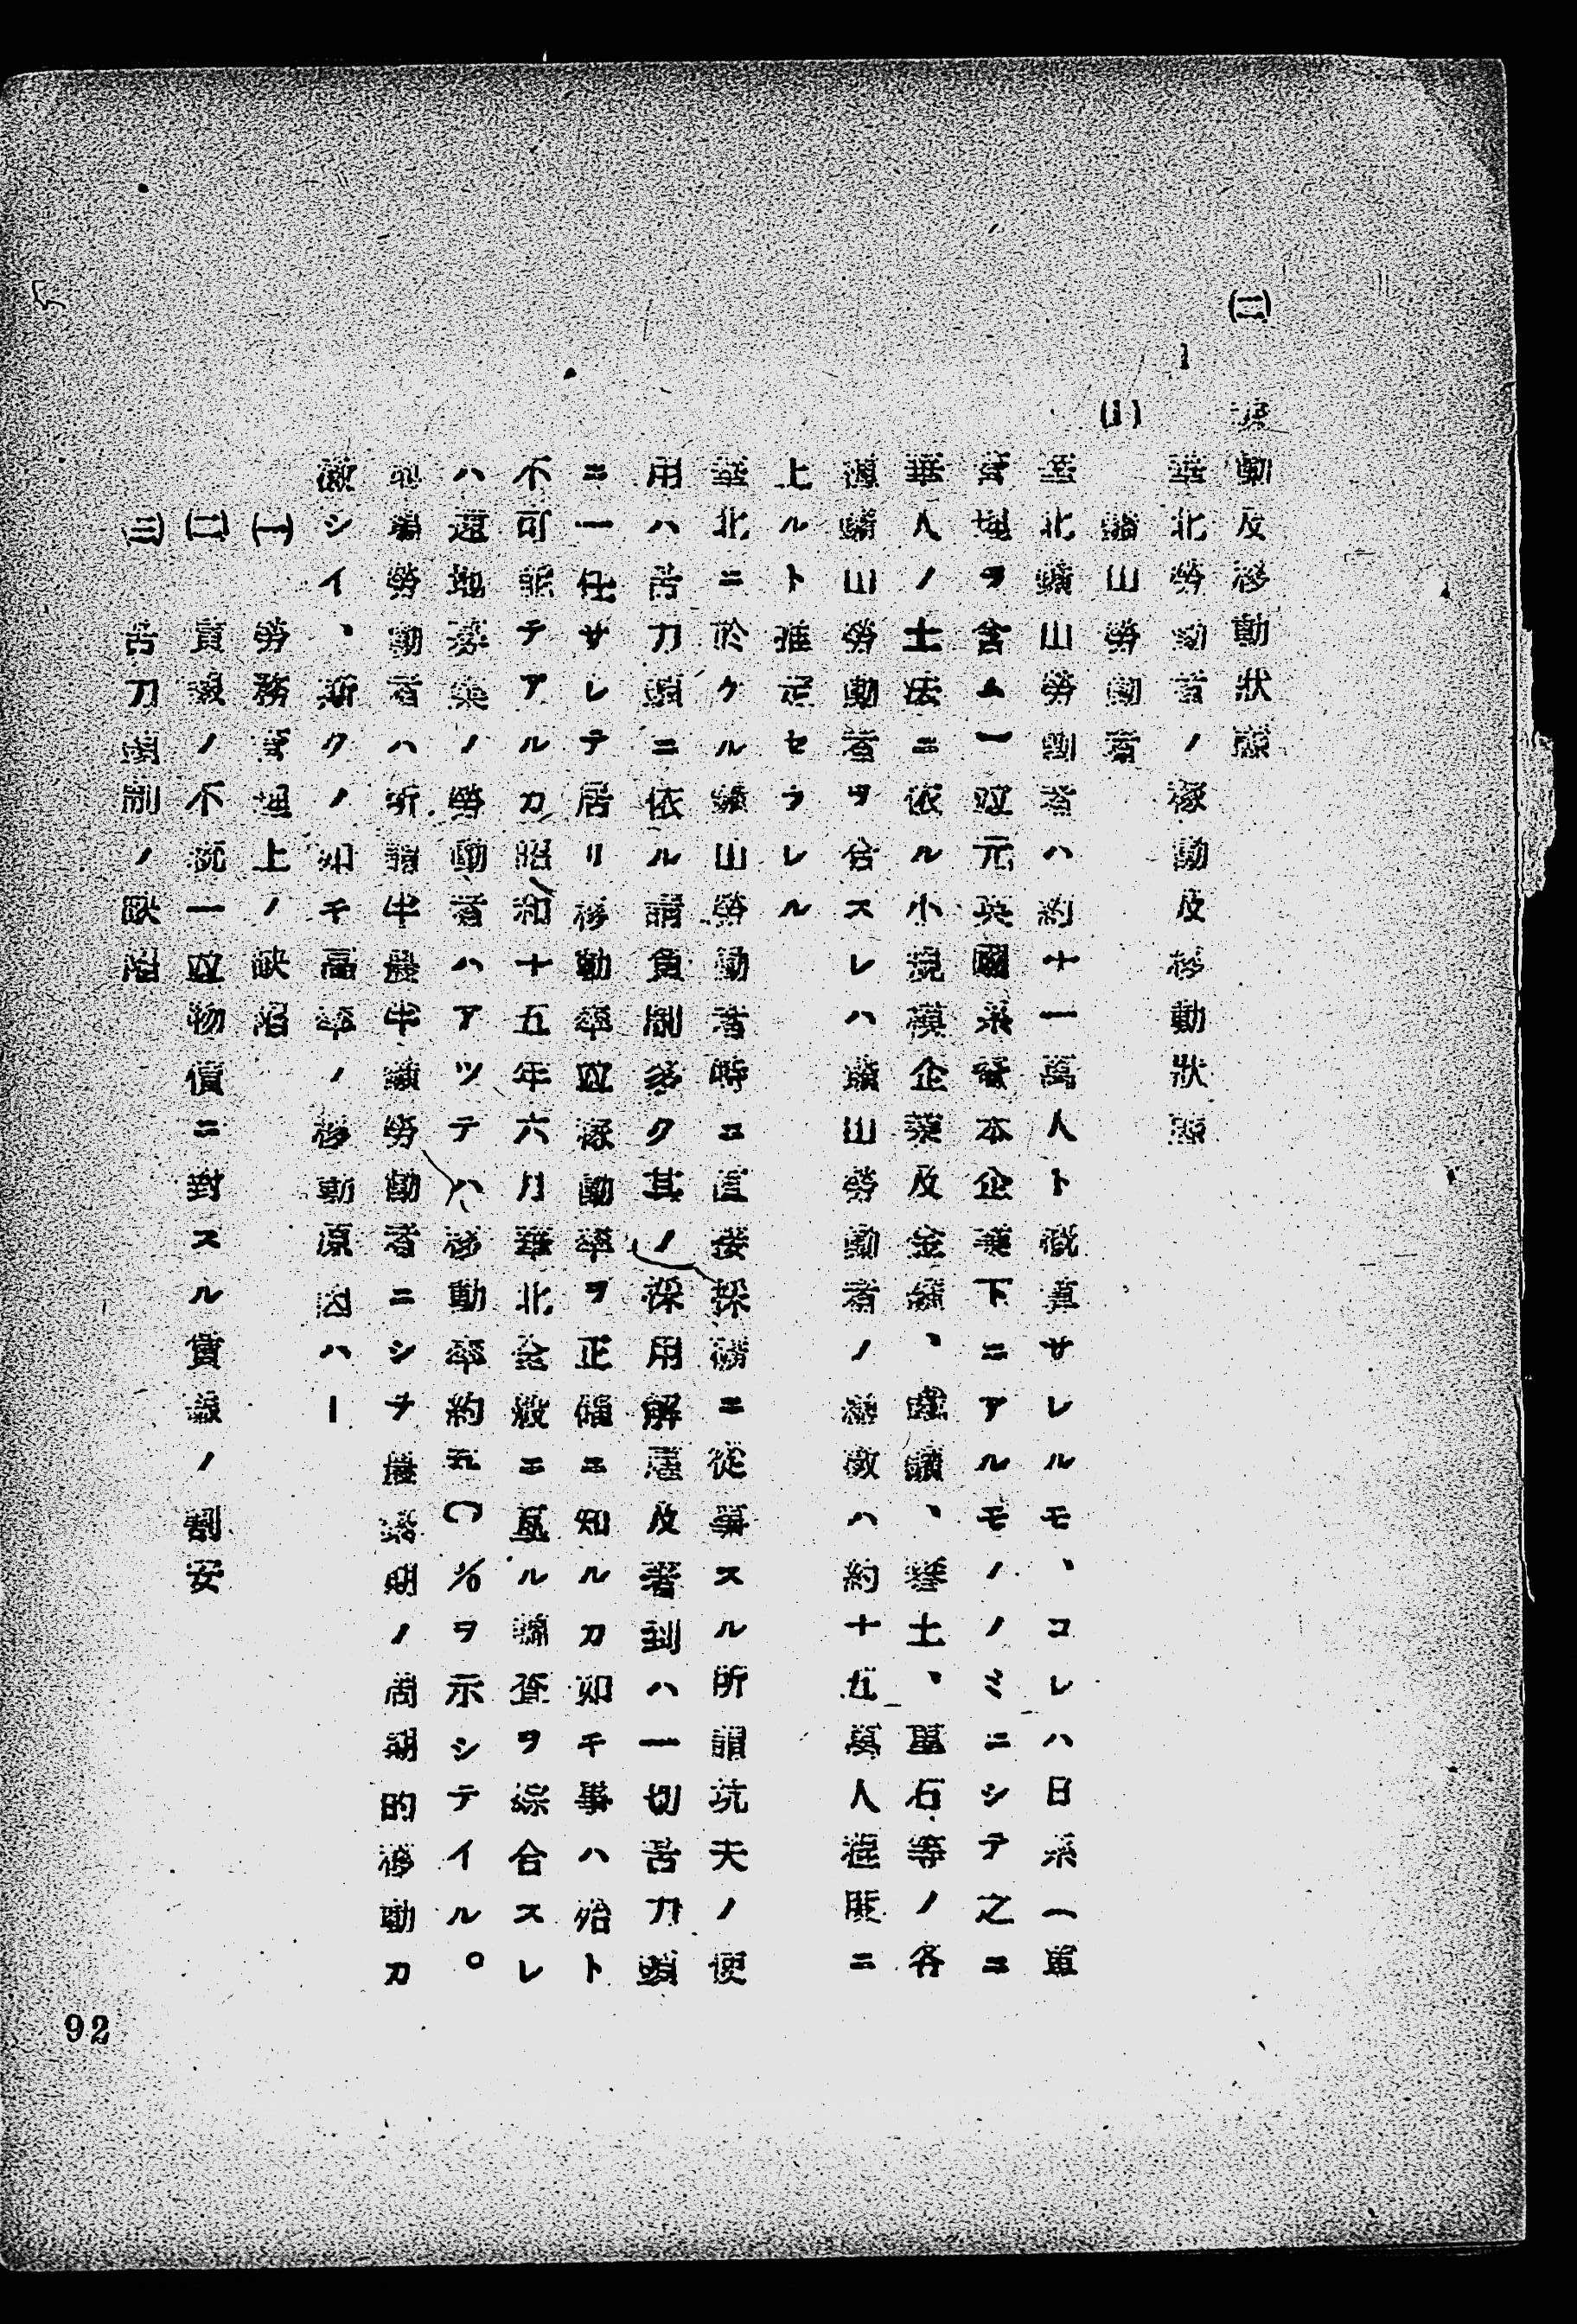 (二) 稼動及移動狀態
1 華北勞働者ノ稼働及移動狀態
(1) 鑛山勞働者
華北鑛山勞働者ハ約十一萬人ト概算サレルモ、コレハ日系(軍
管理ヲ含ム)竝元英國系資本企業下ニアルモノノミニシテ之ニ
華人ノ土法ニ依ル小規模企業及金鑛、螢石、礬土、重石等ノ各
源鑛山勞働者ヲ合スレハ鑛山勞働者ノ總數ハ約十五萬人程度ニ
上ルト推定セラレル
華北ニ於ケル鑛山勞働者特ニ直接採鑛ニ從事スル所謂坑夫ノ使
用ハ苦力頭ニ依ル請負制多ク其ノ採用解雇及著到ハ一切苦力頭
ニ一任サレテ居リ移動率竝稼働率ヲ正確ニ知ルカ如キ事ハ殆ト
不可能テアルカ昭和十五年六月華北全般ニ亙ル調査ヲ綜合スレ
ハ還地炭礦ノ勞働者ハアツテハ移動率約五〇%ヲ示シテイル。
鑛勞働者ハ所謂半農半鑛勞働者ニシテ農繁期ノ週期的移動カ
激シイ、斯クノ如キ高率ノ移動原因ハ—
(一) 勞務管理上ノ缺陷
(二) 賃銀ノ不統一竝物價ニ對スル賃銀ノ割安
(三) 苦力頭制ノ缺陷
92